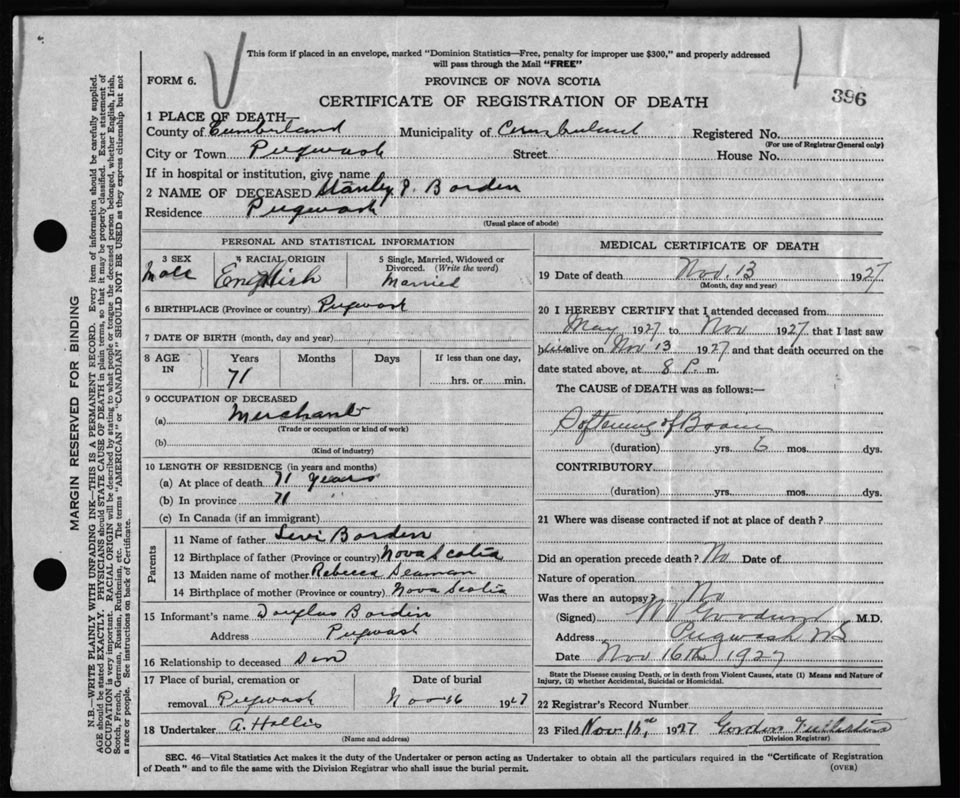 This form if placed in an envelope, marked "Dominion Statistics—Free, penalty for improper use $300," and properly addressed
will pass through the Mail "FREE"
FORM 6.
PROVINCE OF NOVA SCOTIA
CERTIFICATE OF REGISTRATION OF DEATH
396
1 PLACE OF DEATH—
County of Cumberland Municipality of Cumberland Registered No.
(For use of Registrar General only)
City or Town Pugwash Street House No.
If in hospital or institution, give name
2 NAME OF DECEASED Stanley P. Borden
Residence Pugwash
(Usual place of abode)
PERSONAL AND STATISTICAL INFORMATION
3 SEX 4 RACIAL ORIGIN 5 Single, Married, Widowed or Divorced. (Write the word)
Male English Married
6 BIRTHPLACE (Province or country) Pugwash
7 DATE OF BIRTH (month, day and year)
8 AGE IN Years Months Days If less than one day,
71 hrs. or min.
9 OCCUPATION OF DECEASED
(a) Merchant
(Trade or occupation or kind of work)
(b)
(Kind of industry)
10 LENGTH OF RESIDENCE (in years and months)
(a) At place of death 71 years
(b) In province 71 "
(c) In Canada (if an immigrant)
Parents
11 Name of father Levi Borden
12 Birthplace of father (Province or country) Nova Scotia
13 Maiden name of mother Rebecca Seaman
14 Birthplace of mother (Province or country) Nova Scotia
15 Informant's name Douglas Borden
Address Pugwash
16 Relationship to deceased Son
17 Place of burial, cremation or removal Date of burial
Pugwash Nov 16 1927
18 Undertaker A. Hollis
(Name and address)
MEDICAL CERTIFICATE OF DEATH
19 Date of death Nov. 13 1927
(Month, day and year)
20 I HEREBY CERTIFY that I attended deceased from
May 1927 to Nov 1927 that I last saw
h alive on Nov 13 1927 and that death occurred on the
date stated above, at 8 P. m.
The CAUSE of DEATH was as follows:—
Softening of
(duration) yrs. 6 mos. dys.
CONTRIBUTORY
(duration) yrs. mos. dys.
21 Where was disease contracted if not at place of death?
Did an operation precede death? No Date of
Nature of operation
Was there an autopsy? No
(Signed) M.D.
Address Pugwash NS
Date Nov 16th 1927
State the Disease causing Death, or in death from Violent Causes, state (1) Means and Nature of
Injury, (2) whether Accidental, Suicidal or Homicidal.
22 Registrar's Record Number
23 Filed Nov 1927 Gordon
(Division Registrar)
SEC. 46—Vital Statistics Act makes it the duty of the Undertaker or person acting as Undertaker to obtain all the particulars required in the "Certificate of Registration
of Death" and to file the same with the Division Registrar who shall issue the burial permit.
(OVER)
MARGIN RESERVED FOR BINDING
N.B.—WRITE PLAINLY WITH UNFADING INK—THIS IS A PERMANENT RECORD. Every item of information should be carefully supplied.
AGE should be stated EXACTLY. PHYSICIANS should STATE CAUSE OF DEATH in plain terms, so that it may be properly classified. Exact statement of
OCCUPATION is very important. RACIAL ORIGIN will be described by stating to what people or tongue the deceased person belonged, whether English, Irish,
Scotch, French, German, Russian, Ruthenian, etc. The terms "AMERICAN" or "CANADIAN" SHOULD NOT BE USED as they express citizenship but not
a race or people. See instructions on back of Certificate.